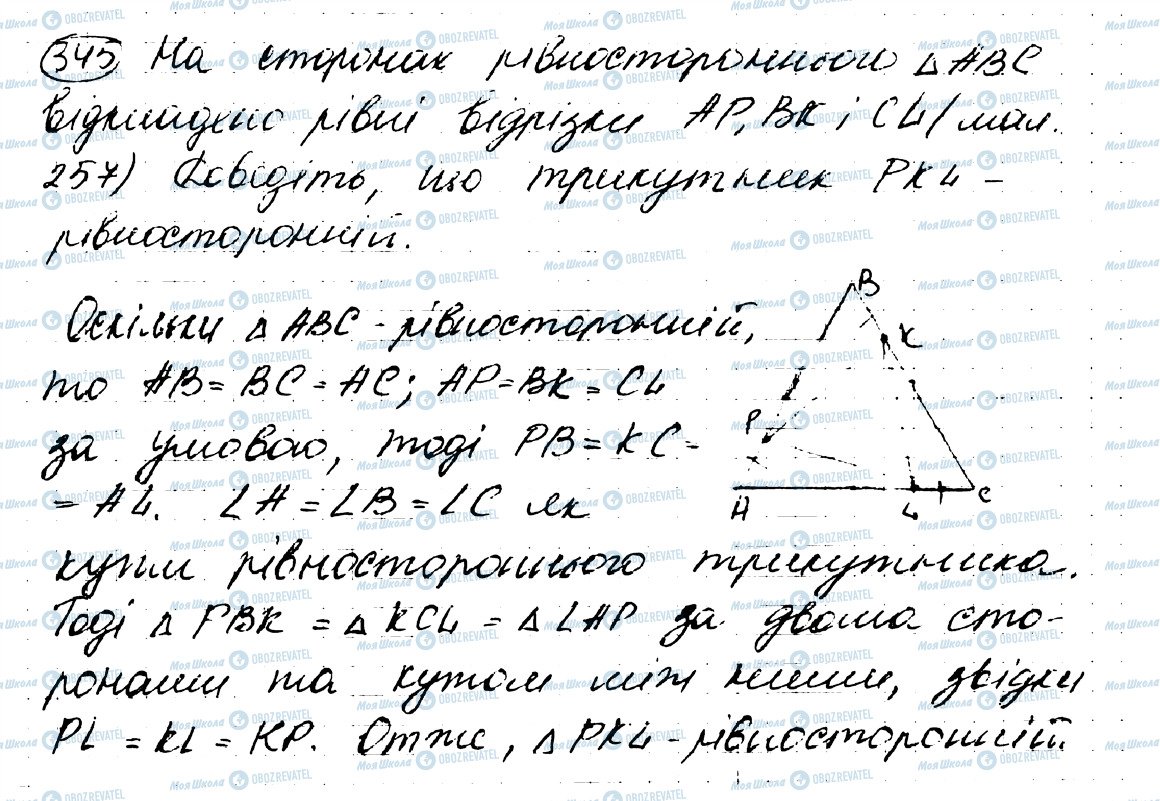 345 На сторонах рівностороннього △ ABC
відкладено рівні відрізки AP, BK і CL (мал.
257) Доведіть, що трикутник PKL -
рівносторонній.
Оскільки △ ABC - рівносторонній,
то AB = BC = AC; AP = BK = CL
за умовою, тоді PB = KC =
= AL. ∠A = ∠B = ∠C як
кути рівностороннього трикутника.
Тоді △ PBK = △ KCL = △ LAP за двома сто-
ронами та кутом між ними, звідки
PL = KL = KP. Отже, △ PKL - рівносторонній.
B
K
P
A
L
C
МояШкола OBOZREVATEL